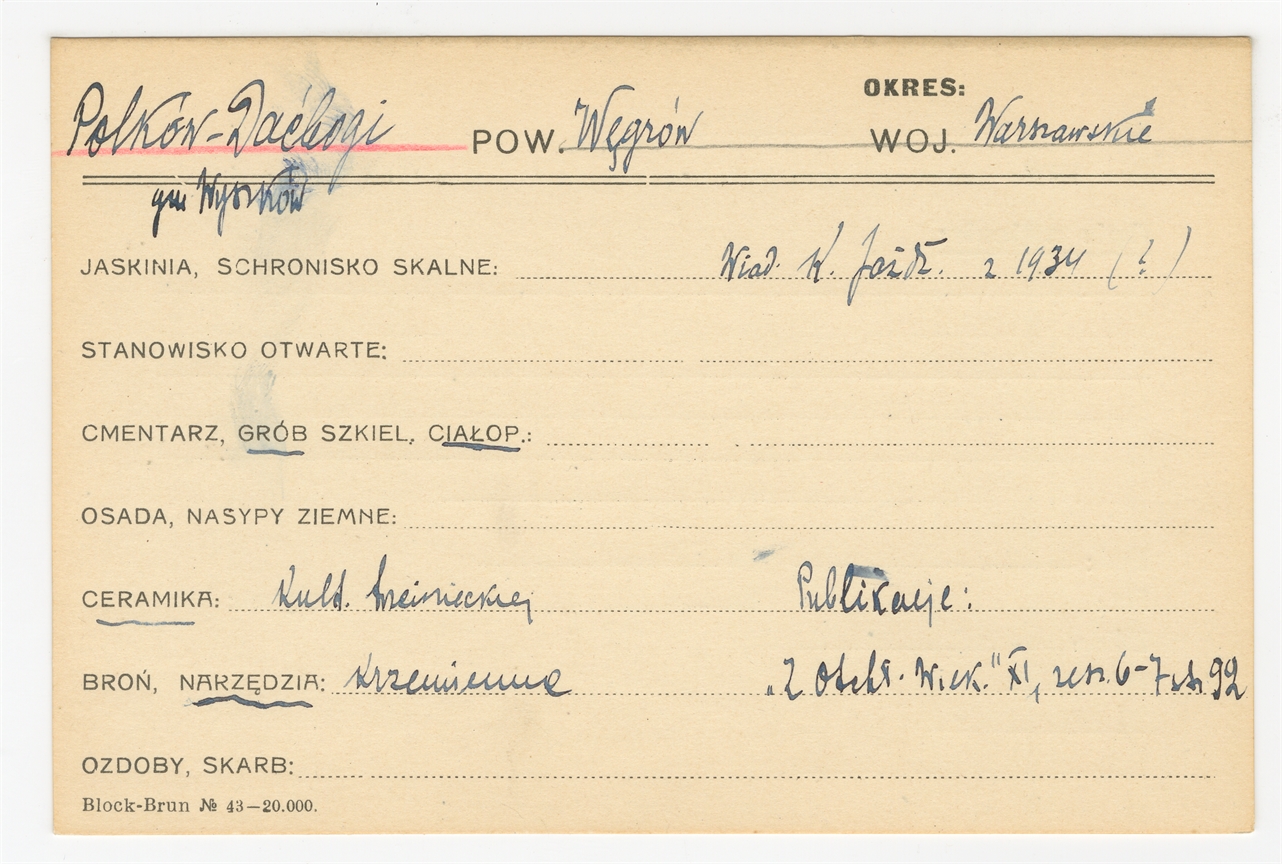 OKRES:
Polków-Daćbogi POW. Węgrów WOJ. Warszawskie
gm Wyszków
JASKINIA, SCHRONISKO SKALNE: Wiad. K. Jażdż. z 1934 (?)
STANOWISKO OTWARTE:
CMENTARZ, GRÓB SZKIEL, CIAŁOP.:
OSADA, NASYPY ZIEMNE:
CERAMIKA: Kult. trzcinieckiej Publikacje:
BROŃ, NARZĘDZIA: krzemienne „Z Otchł. Wiek." XI, zesz. 6-7 str. 92
OZDOBY, SKARB:
Block-Brun № 43—20.000.